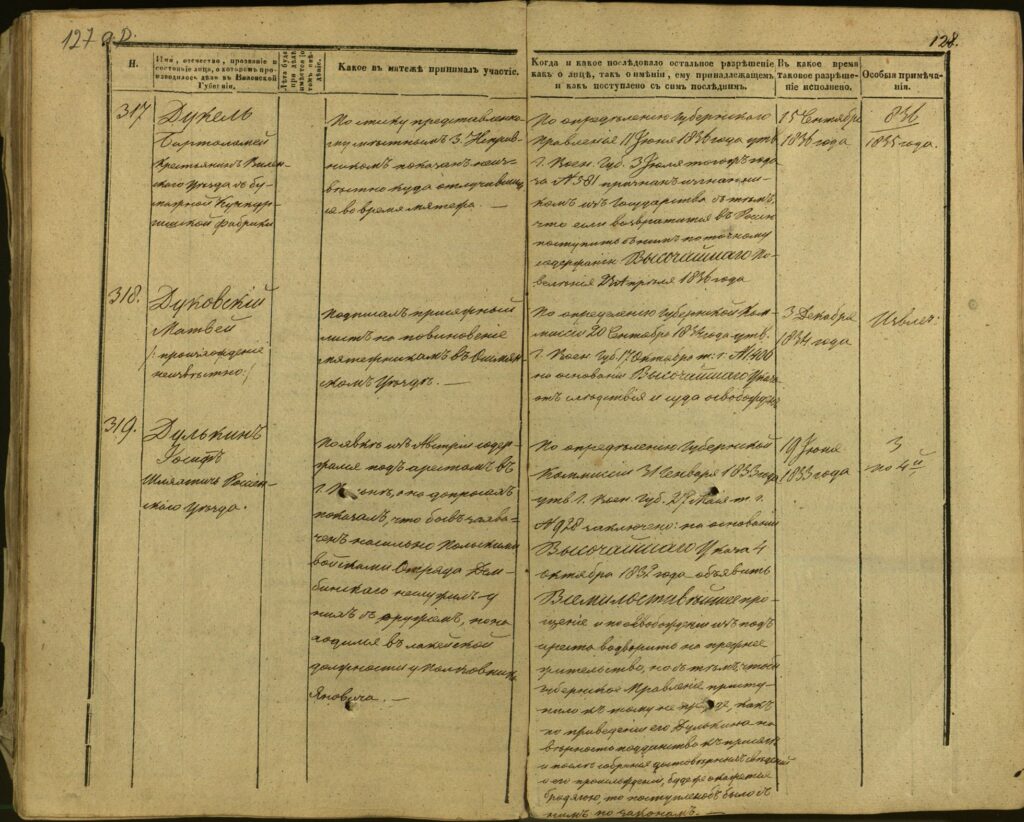 127 
128.
Н.
Имя, отчество, прозваніе и
состояніе лица, о которомъ про-
изводилось дѣло въ Виленской
Губерніи.
Какое въ матежѣ принималъ участіе.
Когда и какое послѣдовало остальное разрѣшеніе
какъ о лицѣ, такъ о имѣніи, ему принадлежащемъ
и какъ поступлено съ симъ послѣднимъ.
Въ какое время
таковое разрѣше-
ніе исполнено.
Особыя примѣча-
нія.
317
Дукель
Бартоломей
Крестьянинъ Вилен-
скаго Уѣзда съ бу-
мажной
фабрики
По списку представленно-
му мѣстнымъ З. Исправ-
никомъ показанъ неиз-
вѣстно куда отлучившим-
ся во время мятежа. —
По опредѣленію Губернскаго
Правленія 11 Іюня 1836 года утв.
Г. Воен. Губ. 3 Іюля того жъ года
за № 381 признанъ изгнанни-
комъ изъ Государства съ тѣмъ,
что если возвратится въ Россію
поступить съ нимъ по точному
содержанію Высочайшаго По-
велѣнія Апрѣля 1836 года
15 Сентября
1836 года
836
1835 года.
318.
Дуковскій
Матвей
/: происхожденіе
неизвѣстно :/
Подписалъ присяжный
листъ на повиновеніе
мятежникамъ въ Ошмян-
скомъ Уѣздѣ. —
По опредѣленію Губернской Ком-
миссіи 20 Сентября 1834 года утв.
Г. Воен. Губ. 17 Октября т. г. № 1406
на основаніи Высочайшаго Указа
отъ слѣдствія и суда освобожденъ
3 Декабря
1834 года
Извлеч:
319.
Дулькинъ
Іосифъ
Шляхтичъ Россіен-
скаго Уѣзда.
По явкѣ изъ Австріи содер-
жался подъ арестомъ въ
г. и по допросамъ
показалъ, что бывъ захва-
ченъ насильно Польскими
войсками Отряда Дем-
бинскаго не служилъ у
нихъ съ оружіемъ, но на-
ходился въ лакейской
должности у Полковника
Яновича. —
По опредѣленію Губернской
Коммиссіи 31 Генваря 1833 года
утв. Г. Воен. Губ. 27 Маія т. г.
№ 928 заключено: на основаніи
Высочайшаго Указа 4
октября 1832 года объявить
Всемилостивѣйшее про-
щеніе и по освобожденіи изъ подъ
ареста водворить на прежнее
жительство, но съ тѣмъ, чтобы
Губернское Правленіе присту-
пило къ тому не прежде, какъ
по приведеніи его Дулькина на
вѣрность подданства къ присягѣ
и послѣ собранія достовѣрныхъ свѣденій
о его происхожденіи, буде же окажется
бродягою, то поступлено бъ было съ
нимъ по законамъ. —
19 Іюня
1833 года
3
по 4й